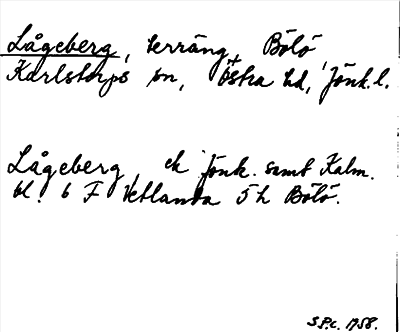 Lågeberg, terräng, Bölö,
Karlstorps sn, Östra hd, Jönk. l.
Lågeberg, ek Jönk. samt Kalm.
bl. 6 F Vetlanda 5 h Bölö.
S.P.c. 1958.